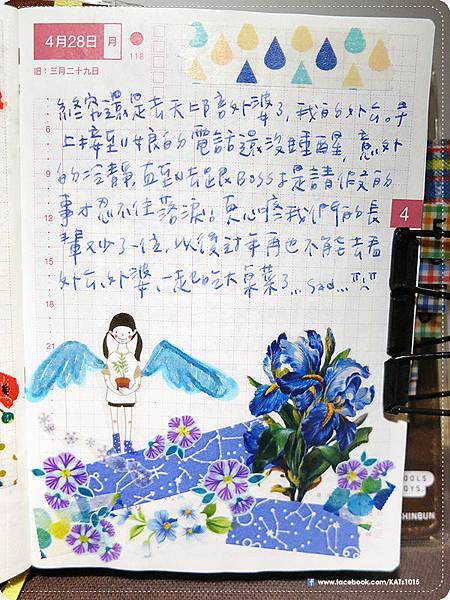 4月28日 月
118
旧：三月二十九日
終究還是去天上陪外婆了，我的外公。早
上接到娘的電話還沒睡醒，意外
的冷靜，直到去跟BOSS于是請假交的
事才忍不住落淚。更心疼我們的長
輩又少了一位，以後對年再也不能去看
外公、外婆，一起吃大桌菜了...sad...
6
9
12
15
18
21
4
OOLS
GYS
SHINBUN
www.facebook.com/KATs1015